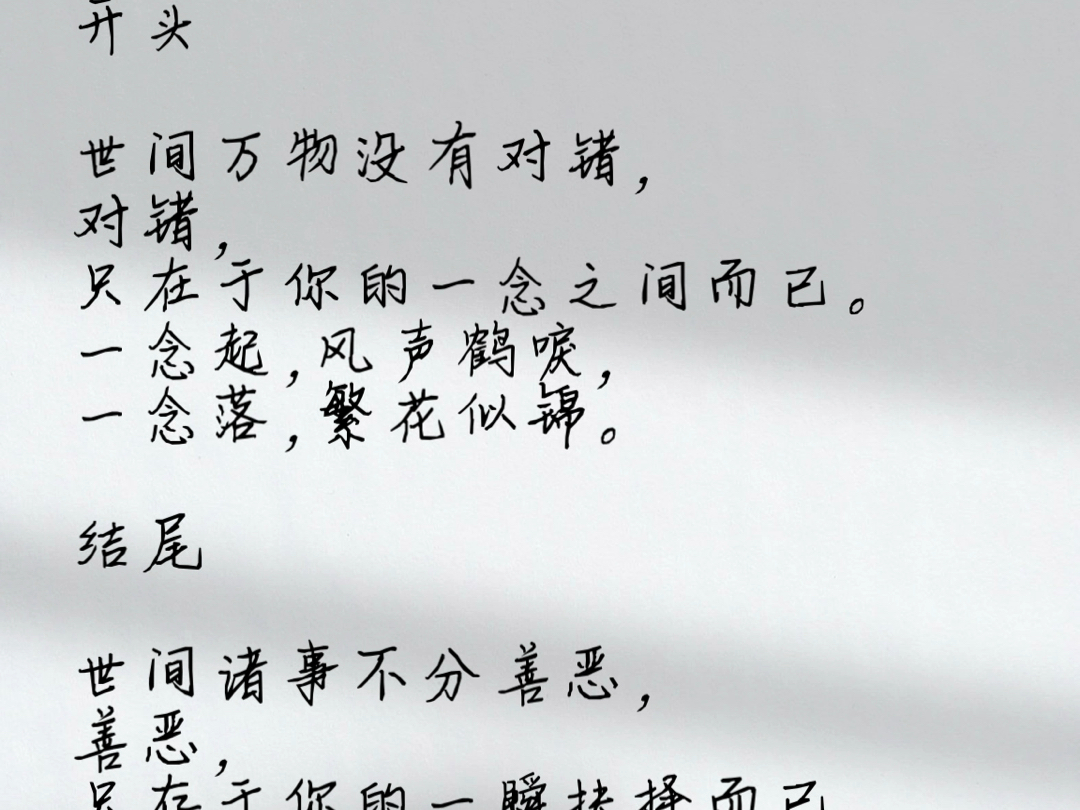 开头
世间万物没有对错，
对错，
只在于你的一念之间而已。
一念起，风声鹤唳，
一念落，繁花似锦。
结尾
世间诸事不分善恶，
善恶，
只在于你的一瞬抉择而已